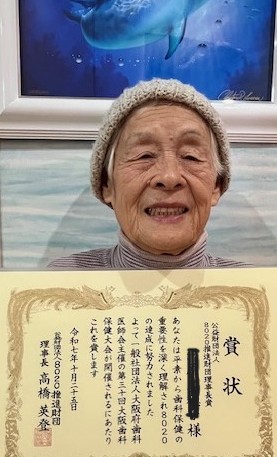 賞状
公益財団法人
8020推進財団理事長賞
様
あなたは平素から歯科保健の
重要性を深く理解され8020
の達成に努力されました
よって一般社団法人大阪府歯科
医師会主催の第三十回大阪歯科
保健大会が開催されるにあたり
これを賞します
令和七年十月二十五日
公益財団法人8020推進財団
理事長 高橋英登